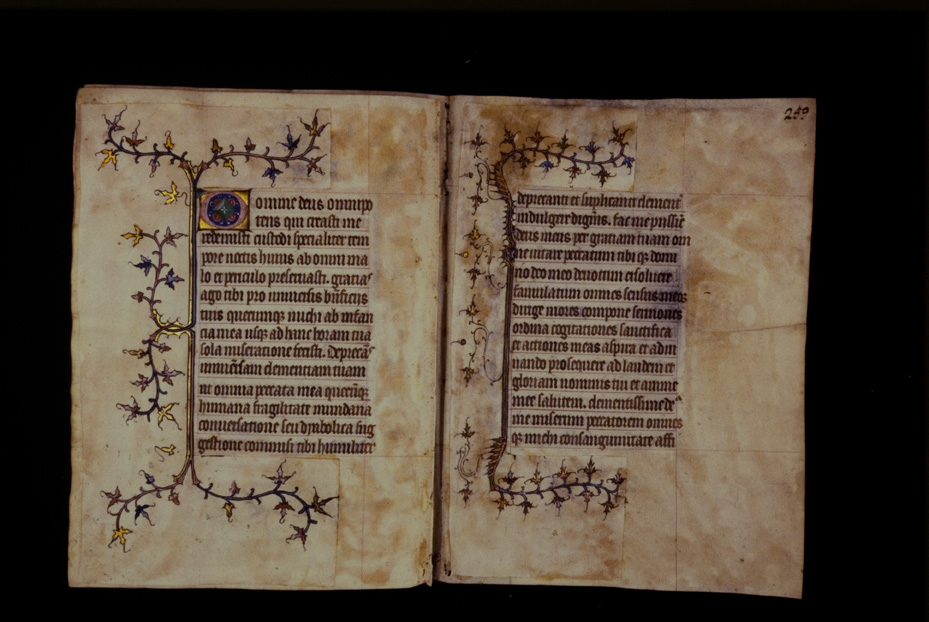 Domine deus omnipo
tens qui creasti me
redemisti custodi specialiter tem
pore noctis huius ab omni ma
lo et periculo preseruasti. gratias
ago tibi pro uniuersis bñficiis
tuis quecumqz michi ab infan
cia mea usqz ad hanc horam tua
sola miseratione fecisti. Deprecor
clementiam tuam
ut omnia peccata mea quecũqz
humana fragilitate mundana
conuersatione seu dyabolica sug
gestione commisi tibi humiliter
259
deprecanti et suplicanti clement̃
indulgere digñis. fac me piissie
deus meus per gratiam tuam om
ne uitare peccatum tibi qz domi
no deo meo deuotum exsoluere
famulatum omnes sensus meos
dirige mores compone sermones
ordina cogitationes sanctifica
et actiones meas aspira et adiu
uando prosequere ad laudem et
gloriam nominis tui et anime
mee salutem. clementissime de
me miserum peccatorem omnes
qz michi consanguinitate affi